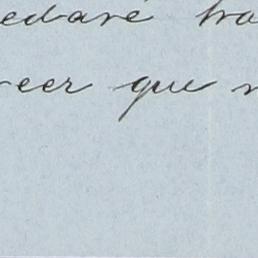 edaré tra
reer que